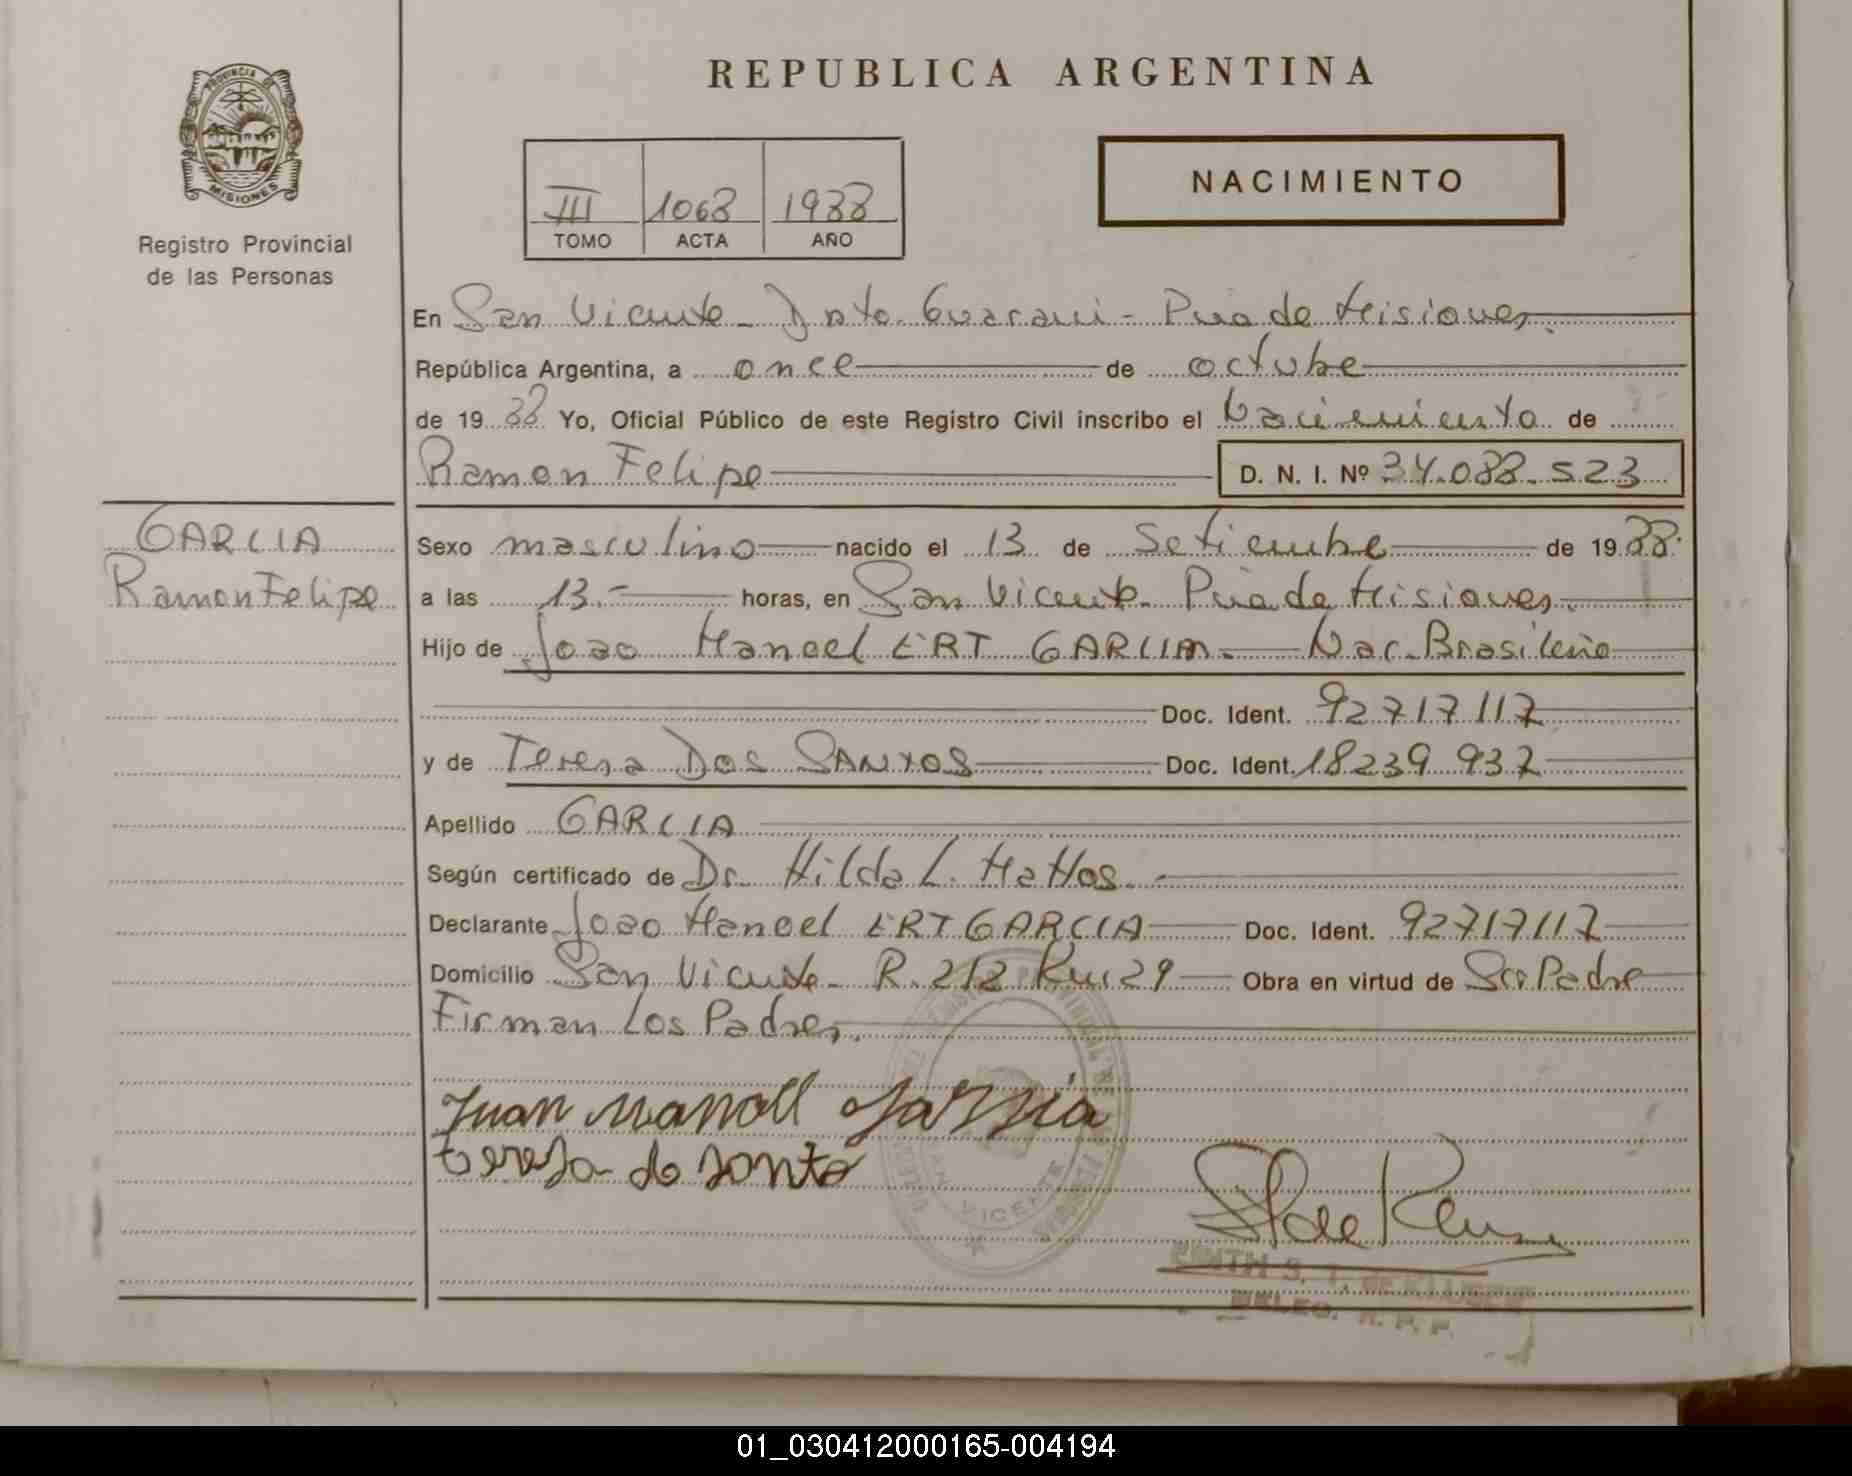 REPUBLICA ARGENTINA
PROVINCIA DE
MISIONES
Registro Provincial
de las Personas
III 1068 1988
TOMO ACTA AÑO
NACIMIENTO
En San Vicente - Dpto. Guarani - Pcia de Misiones.
República Argentina, a once de octubre
de 1988 Yo, Oficial Público de este Registro Civil inscribo el Nacimiento de
Ramon Felipe D. N. I. Nº 34.088.523
GARCIA
Ramon Felipe
Sexo masculino nacido el 13 de Setiembre de 1988.
a las 13.- horas, en San Vicente - Pcia de Misiones.
Hijo de Joao Manoel ERT GARCIA - Nac. Brasileño
Doc. Ident. 92717117
y de Teresa Dos SANTOS Doc. Ident. 18239937
Apellido GARCIA
Según certificado de Dr. Hilda L. Mattos.
Declarante Joao Manoel ERT GARCIA Doc. Ident. 92717117
Domicilio San Vicente - R. 212 Km 29 Obra en virtud de Ser Padre
Firman Los Padres.
Juan manoll garsia
teresa do santo
SAN VICENTE
EDITH S. T. de KLUSEN
DELEG. R. P. P.
01_030412000165-004194